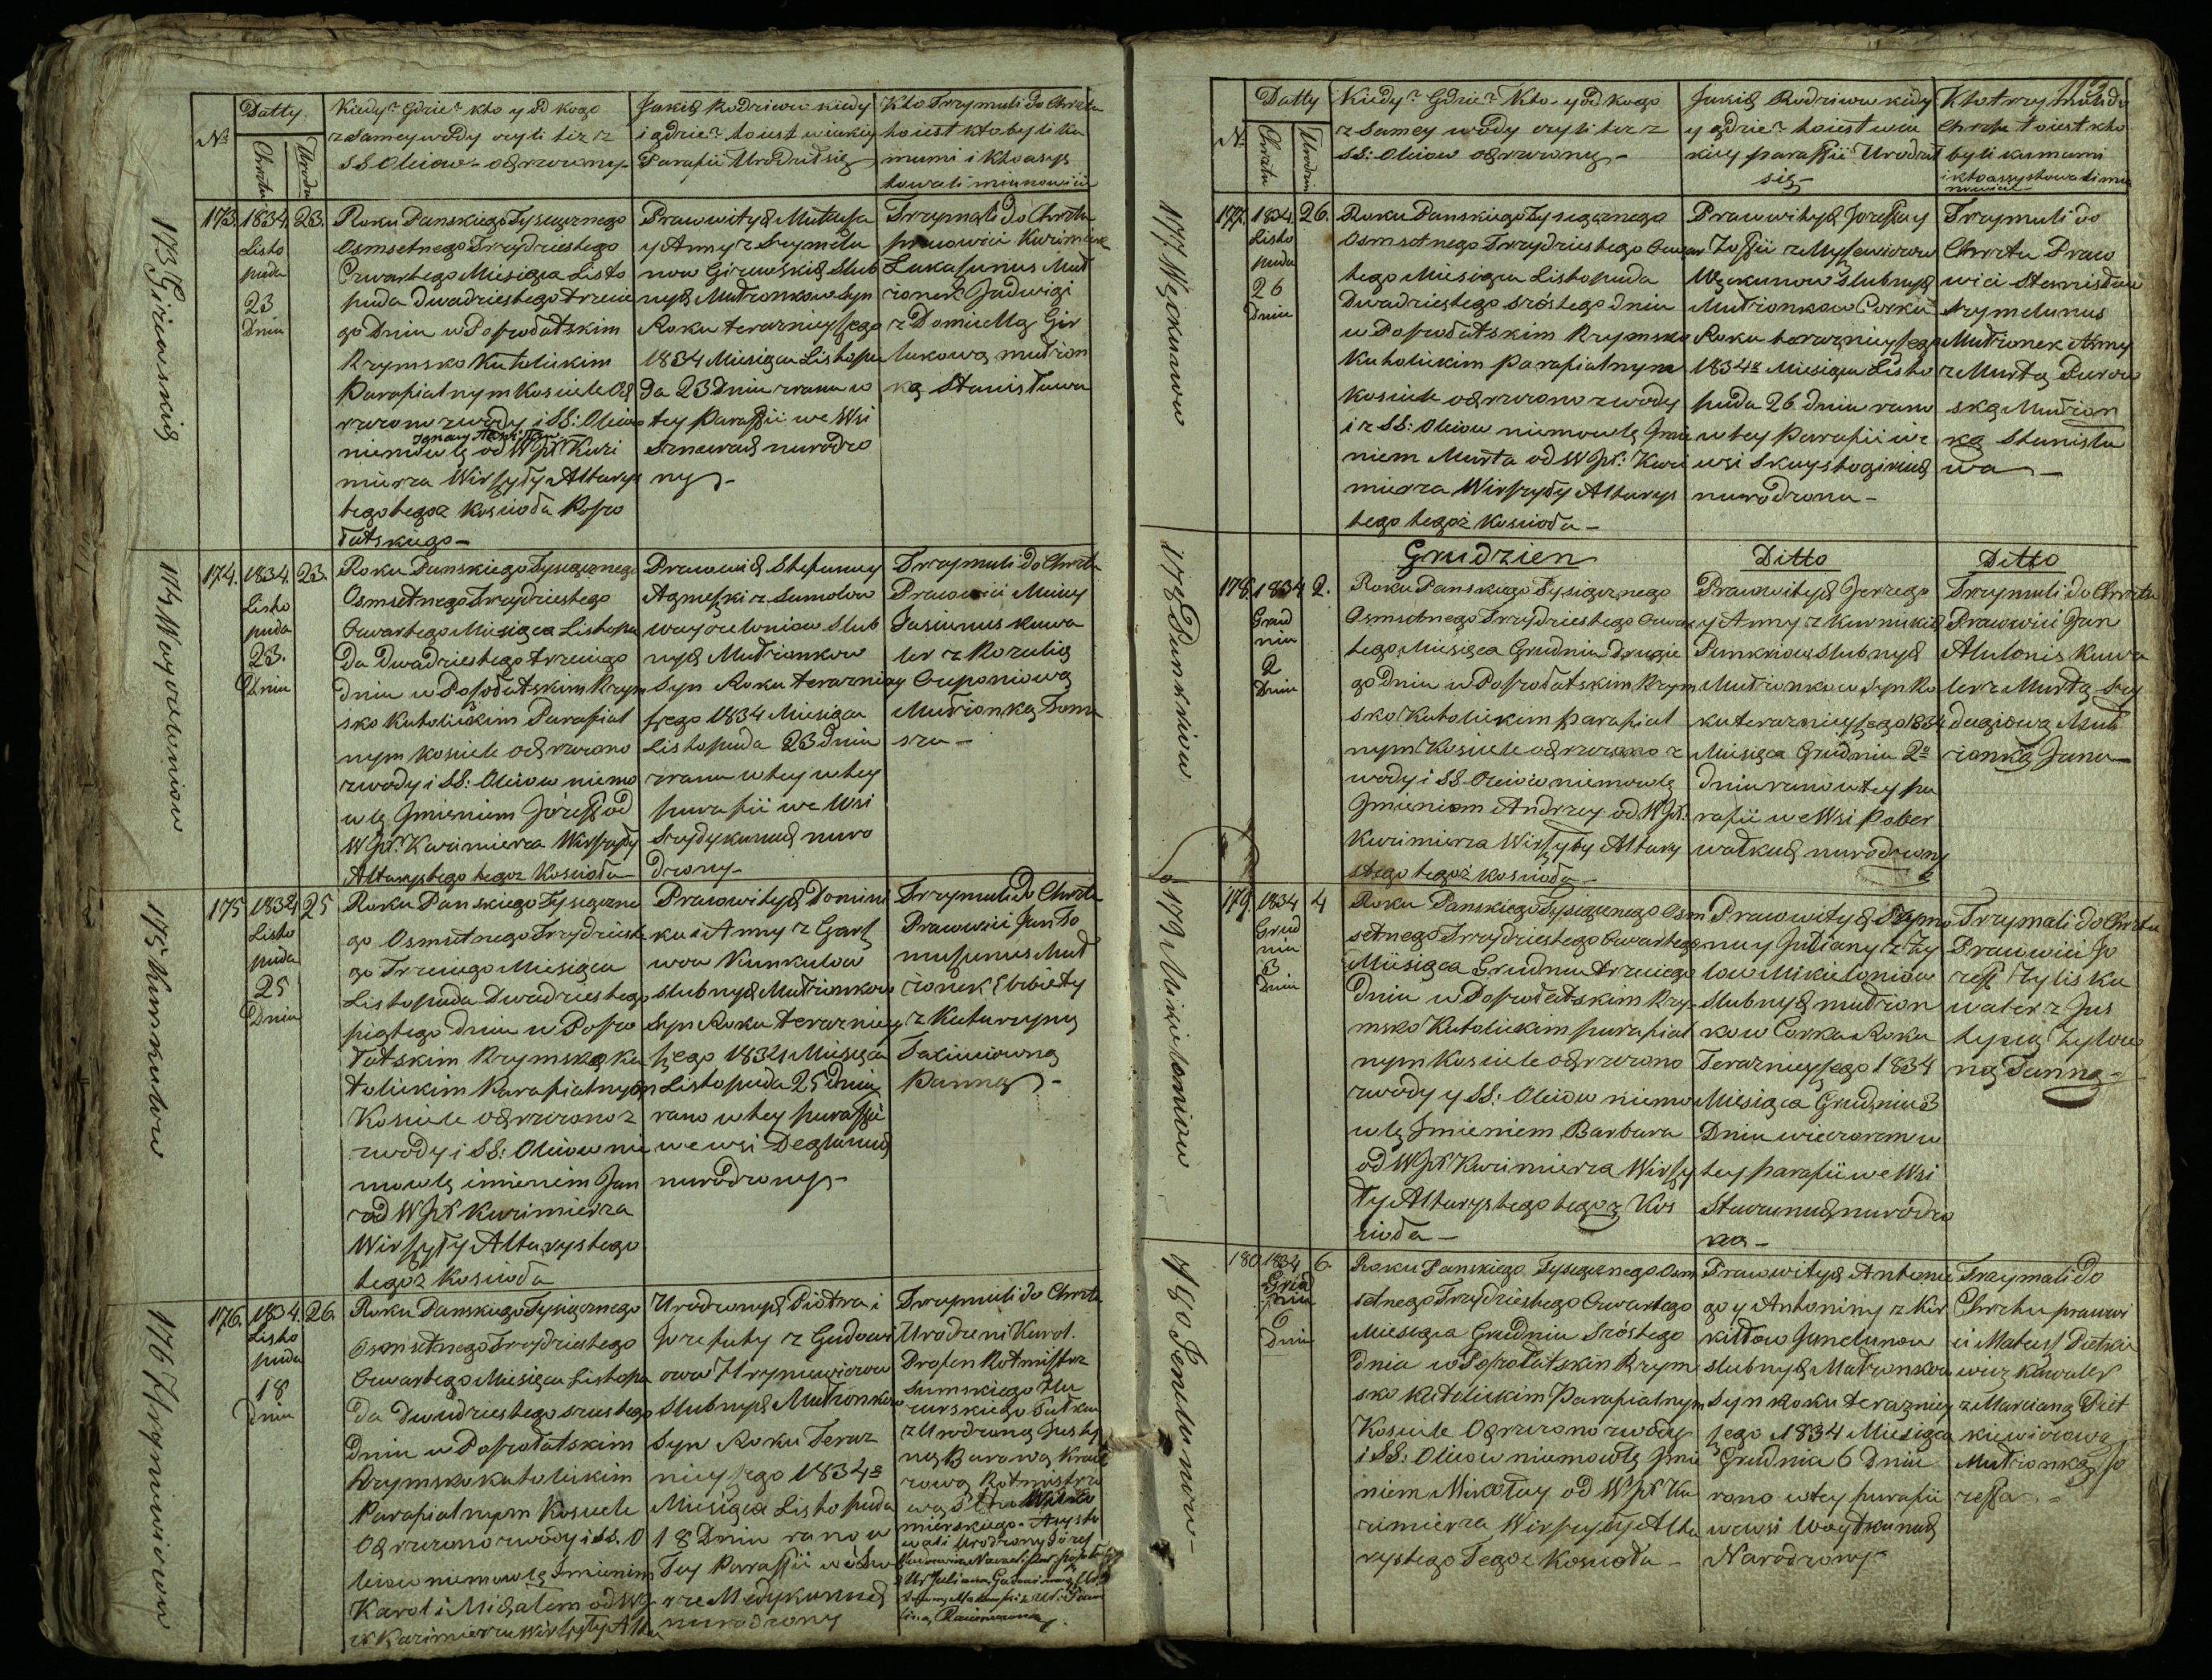 Datty
Kiedy? Gdzie? kto y od kogo
z Samey wody czyli też z
SS Oleiow ochrzczony
Jakich Rodziców kiedy
i gdzie? to iest w iakiey
Parafii Urodził się
Kto Trzymali do Chrztu
to iest kto byli ku
mami i kto asys
towali mianowicie
No
Chrztu
Urodze
173 Giruwskich
173.
1834.
Listo
pada
23
Dnia
23.
Roku Panskiego Tysiącznego
Osmsetnego Trzydziestego
Czwartego Miesiąca Listo
pada dwadziestego trzecie
go Dnia w Posrołatskim
Rzymsko Katolickim
Parafialnym Kosciele Och
rzczono z wody i SS: Oleiow
Ignacy Stanisław
niemowle od WJX Kazi
mierza Wirszyły Altarys
tego tegoż Koscioła Posro
łatskiego
Prawowitych Mateusza
y Anny z Szymela
now Giruwskich Slub
nych Małzonkow Syn
Roku terazniejszego
1834 Miesiąca Listopa
da 23 Dnia zrana w
tey Parafii we Wsi
narodzo
ny
Trzymali do Chrztu
prawowici Kazimierz
Lukaszunas Mał
zonek Jadwigi
z Dominiką Gir
lukową małzon
ką Stanisława
174 Woyczulewiczow
174.
1834.
Listo
pada
23.
Dnia
23.
Roku Panskiego Tysiącznego
Osmsetnego Trzydziestego
Czwartego Miesiąca Listopa
da Dwadziestego trzeciego
dnia w Posrołatskim Rzym
sko Katolickim Parafial
nym kosciele ochrzczono
z wody i SS: Oleiow niemo
wle Jmieniem Józeff od
WJX: Kazimierza Wirszyły
Altarystego tegoż Kosciola
Prawowitych Stefana y
Agnieszki z Samolow
Slub
nych Małzonkow
Syn Roku terazniey
szego 1834 Miesiąca
Listopada 23 dnia
zrana w tey w tey
parafii we Wsi
Szydykanach naro
dzony
Trzymali do Chrztu
Prawowici Maciey
Jasiunas kawa
ler z Rozalią
Czeponiową
Małzonką Toma
sza
175 Kunkulow
175
1834
Listo
pada
25
Dnia
25
Roku Panskiego Tysiączne
go Osmsetnego Trzydzieste
go Trzeciego Miesiąca
Listopada Dwadziestego
piątego dnia w Posro
łatskim Rzymsko ka
tolickim Parafialnym
Kosciele ochrzczono z
zwody i SS: Oleiow nie
mowle imieniem Jan
od WJX Kazimierza
Wirszyły Altarystego
tegoż Kosciola
Prawowitych Domini
ka i Anny z Garsz
wow Kunkulow
slubnych Małzonkow
Syn Roku terazniey
szego 1834 Miesiąca
Listopada 25 dnia
rano w tey parafii
we wsi Degłunach
narodzony
Trzymali do Chrztu
Prawowici Jan To
maszunas Mał
zonek Elzbiety
z Katarzyną
Panną
176 Hryniewiczow
176.
1834.
Listo
pada
18
Dnia
26.
Roku Panskiego Tysiącznego
Osmsetnego Trzydziestego
Czwartego Miesiąca Listopa
da Dwudziestego szustego
Dnia w Posrołatskim
Rzymsko katolickim
Parafialnym Kosciele
Ochrzczono z wody i SS. O
leiow niemowle Jmieniem
Karol i Michałem od WJ
X Kazimierza Wirszyły Alta
Urodzonych Piotra i
Jozefaty z
Hryniewiczow
Slubnych Małzonkow
Syn Roku Teraz
nieyszego 1834
Miesiąca Listopada
18 Dnia rano w
Tey Parafii
narodzony
Trzymali do Chrztu
Urodzeni Karol
Rotmistrz
z Urodzoną Justy
ną
Rotmistrzo
wą
Assysto
wali Urodzony Jozef
177 Węckunow
Datty
Kiedy? Gdzie? Kto y od kogo
z Samey wody czyli też z
SS: Oleiow ochrzczony
Jakich Rodziców kiedy
y gdzie? to iest w ia
kiey parafii Urodził
się
Kto trzymali do
Chrztu to iest kto
byli kumami
i kto assystowali mia
nowicie
No
Chrztu
Urodzin
177.
1834.
Listo
pada
26
Dnia
26.
Roku Panskiego Tysiącznego
Osmsetnego Trzydziestego Czwar
tego Miesiąca Listopada
Dwadziestego szóstego dnia
w Posrołatskim Rzymsko
Katolickim parafialnym
kosciele ochrzczono z wody
i z SS: Oleiow niemowle Jmie
niem Marta od WJX: Kazi
mierza Wirszyły Altarys
tego tegoż Kosciola
Prawowitych Jozeffa y
Zoffii z
Węckunow Slubnych
Małzonkow Corka
Roku terazniejszego
1834 Miesiąca Listo
pada 26 dnia rano
w tey Parafii we
wsi Skaystogiriach
narodzona
Trzymali do
Chrztu Prawo
wici Stanisław
Szymelunas
Małzonek Anny
z Martą
Małzon
ką Stanisła
wa
178
Grudzien
Ditto
Ditto
178.
1834
Grud
nia
2
Dnia
2.
Roku Panskiego Tysiącznego
Osmsetnego Trzydziestego Czwar
tego Miesiąca Grudnia drugie
go dnia w Posrołatskim Rzym
sko Katolickim parafial
nym Kosciele ochrzczono z
wody i SS Oleiow niemowle
Jmieniem Andrzey od WJX:
Kazimierza Wirszyły Altary
stego tegoż kosciola
Prawowitych Jerzego
y Anny z
Slubnych
Małzonkow Syn Ro
ku terazniejszego 1834
Miesiąca Grudnia 2
dnia rano w tey pa
rafii we Wsi Pober
wałkach narodzony
Trzymali do Chrztu
Prawowici Jan
Atutonis Kawa
ler z Martą Szy
dagiową Mał
zonką Jana
179 Mikielioniow
179.
1834
Grud
nia
3
Dnia
4
Roku Panskiego Tysiącznego Osm
setnego Trzydziestego Czwartego
Miesiąca Grudnia trzeciego
dnia w Posrołatskim Rzy
msko Katolickim parafial
nym Kosciele ochrzczono
z wody y SS: Oleiow niemo
wle Jmieniem Barbara
od WJX Kazimierza Wirszy
ły Altarystego tegoż Kos
cioła
Prawowitych Szymo
na y Julianny z Zy
low Mikielioniow
Slubnych małzon
kow Corka Roku
Terazniejszego 1834
Miesiąca Grudnia 3
Dnia wieczorem w
tey parafii we Wsi
narodzo
na
Trzymali do Chrztu
Prawowici Jo
zeff Zylis ka
waler z Jus
tyną Zylow
ną Panną
180 Jendunow
180
1834
Grud
nia
6
Dnia
6
Roku Panskiego Tysiącznego Osm
setnego Trzydziestego Czwartego
Miesiąca Grudnia Szóstego
dnia w Posrołatskim Rzym
sko Katolickim Parafialnym
Kosciele Ochrzczono z wody
i SS: Oleiow niemowle Jmie
niem Mikołay od WJX Ka
zimierza Wirszyły Alta
rystego Tegoż Kosciola
Prawowitych Antonie
go y Antoniny z Kir
kiłłow Jandunow
slubnych Małzonkow
Syn Roku terazniey
szego 1834 Miesiąca
Grudnia 6 Dnia
rano w tey parafii
we wsi Woytkunach
Narodzony
Trzymali do
Chrztu prawowi
ci Mateusz Pietkie
wicz kawaler
z Marcianą Piet
kiewiczową
Małzonką Jo
zeffa